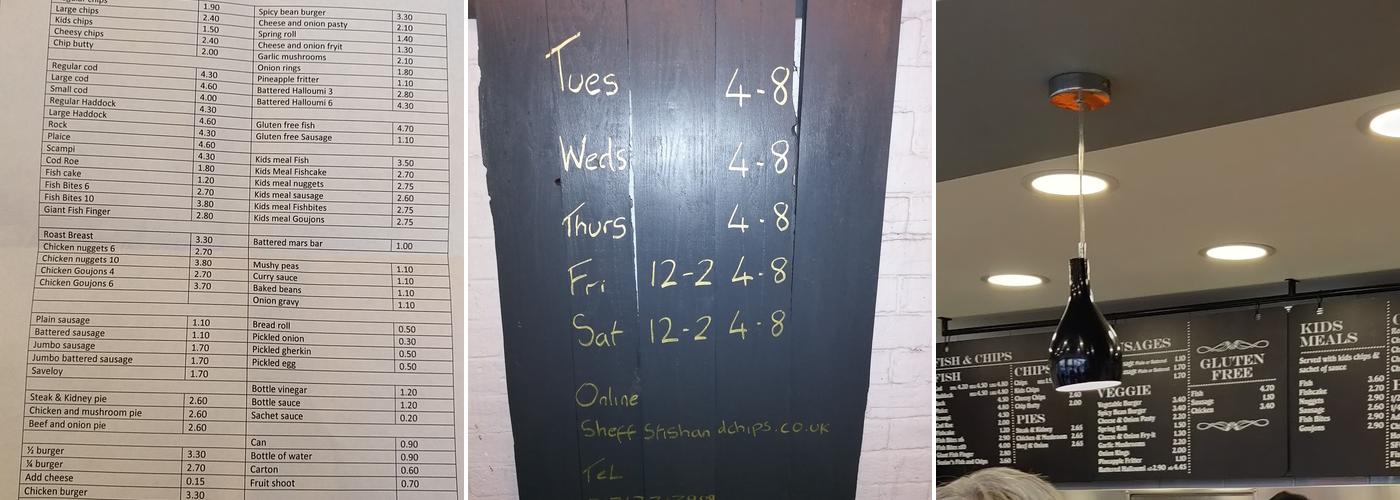 chips 1.90
Large chips 2.40
Kids chips 1.50
Cheesy chips 2.40
Chip butty 2.00
Regular cod 4.30
Large cod 4.60
Small cod 4.00
Regular Haddock 4.30
Large Haddock 4.60
Rock 4.30
Plaice 4.60
Scampi 4.30
Cod Roe 1.80
Fish cake 1.20
Fish Bites 6 2.70
Fish Bites 10 3.80
Giant Fish Finger 2.80
Roast Breast 3.30
Chicken nuggets 6 2.70
Chicken nuggets 10 3.80
Chicken Goujons 4 2.70
Chicken Goujons 6 3.70
Plain sausage 1.10
Battered sausage 1.10
Jumbo sausage 1.70
Jumbo battered sausage 1.70
Saveloy 1.70
Steak & Kidney pie 2.60
Chicken and mushroom pie 2.60
Beef and onion pie 2.60
½ burger 3.30
¼ burger 2.70
Add cheese 0.15
Chicken burger 3.30
Spicy bean burger 3.30
Cheese and onion pasty 2.10
Spring roll 1.40
Cheese and onion fryit 1.30
Garlic mushrooms 2.10
Onion rings 1.80
Pineapple fritter 1.10
Battered Halloumi 3 2.80
Battered Halloumi 6 4.30
Gluten free fish 4.70
Gluten free Sausage 1.10
Kids meal Fish 3.50
Kids Meal Fishcake 2.70
Kids meal nuggets 2.75
Kids meal sausage 2.60
Kids meal Fishbites 2.75
Kids meal Goujons 2.75
Battered mars bar 1.00
Mushy peas 1.10
Curry sauce 1.10
Baked beans 1.10
Onion gravy 1.10
Bread roll 0.50
Pickled onion 0.30
Pickled gherkin 0.50
Pickled egg 0.50
Bottle vinegar 1.20
Bottle sauce 1.20
Sachet sauce 0.20
Can 0.90
Bottle of water 0.90
Carton 0.60
Fruit shoot 0.70
Tues 4-8
Weds 4-8
Thurs 4-8
Fri 12-2 4-8
Sat 12-2 4-8
Online
Tel
FISH & CHIPS
FISH
CHIPS
Chips
Kids Chips
Cheesy Chips
Chip Butty 2.00
PIES
Steak & Kidney 2.65
Chicken & Mushroom 2.65
Beef & Onion 2.65
VEGGIE
Vegetable Burger
Spicy Bean Burger
Cheese & Onion Pasty
Spring Roll
Cheese & Onion Fry-it
Garlic Mushrooms
Onion Rings
Pineapple Fritter
Battered Halloumi
GLUTEN
FREE
Fish 4.70
Sausage 1.10
Chicken 3.40
KIDS
MEALS
Served with kids chips &
sachet of sauce
Fish 3.60
Fishcake 2.70
Nuggets 2.90
Sausage 2.60
Fish Bites 2.90
Goujons 2.90